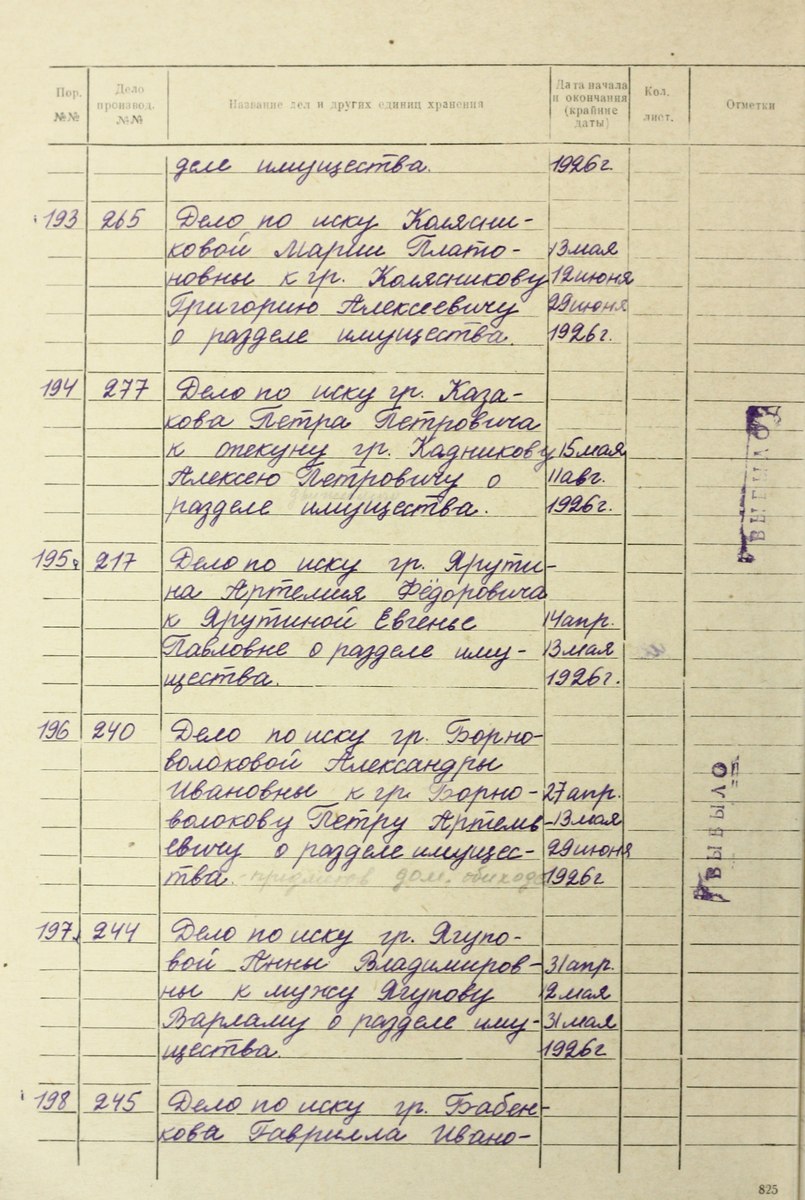 Пор. №№ Дело производ. №№ Название дел и других единиц хранения Дата начала и окончания (крайние даты) Кол. лист. Отметки
деле имущества. 1926г.
193 265 Дело по иску Колясни-
ковой Марии Плато- 13 мая
новны к гр. Колясникову 12 июня
Григорию Алексеевичу 29 июня
о разделе имущества. 1926г.
194 277 Дело по иску гр. Каза-
кова Петра Петровича
к опекуну гр. Кадникову 15 мая
Алексею Петровичу о 11 авг.
разделе имущества. 1926г.
ВЫБЫЛО
195 217 Дело по иску гр. Ярути-
на Артемия Фёдоровича
к Ярутиной Евгенье 14 апр.
Павловне о разделе иму- 13 мая
щества. 1926г.
196 240 Дело по иску гр. Борно-
волоковой Александры
Ивановны к гр. Борно- 27 апр.
волокову Петру Артемь- 13 мая
евичу о разделе имущес- 29 июня
тва. предметов дом. обихода 1926г
ВЫБЫЛО
197 244 Дело по иску гр. Ягупо-
вой Анны Владимиров- 31 апр.
ны к мужу Ягупову 12 мая
Варламу о разделе иму- 31 мая
щества. 1926г
198 245 Дело по иску гр. Бабен-
кова Гаврилла Ивано-
825